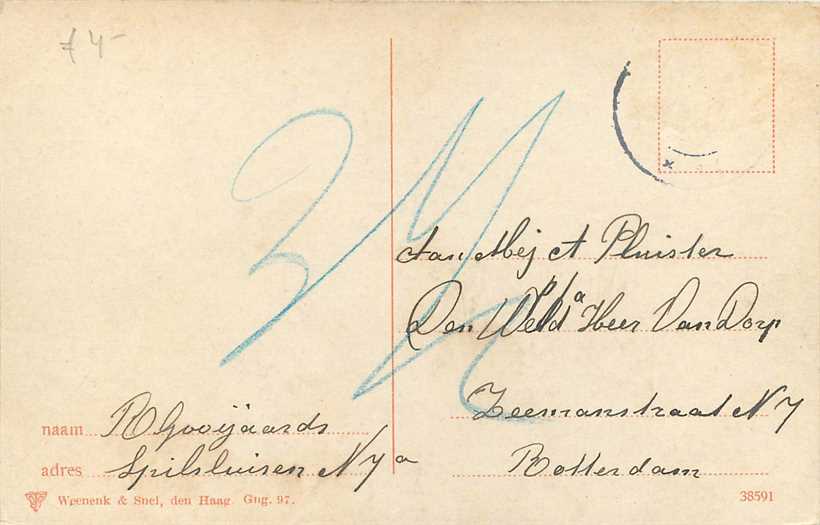 f 4-
3
Aan Mej A Pluister
p/a
Den Weld Heer Van Dorp
Zeemanstraat N 7
Rotterdam
naam R Gooijaards
adres Spilsluisen N 7 a
Weenenk & Snel, den Haag. Gng. 97.
38591